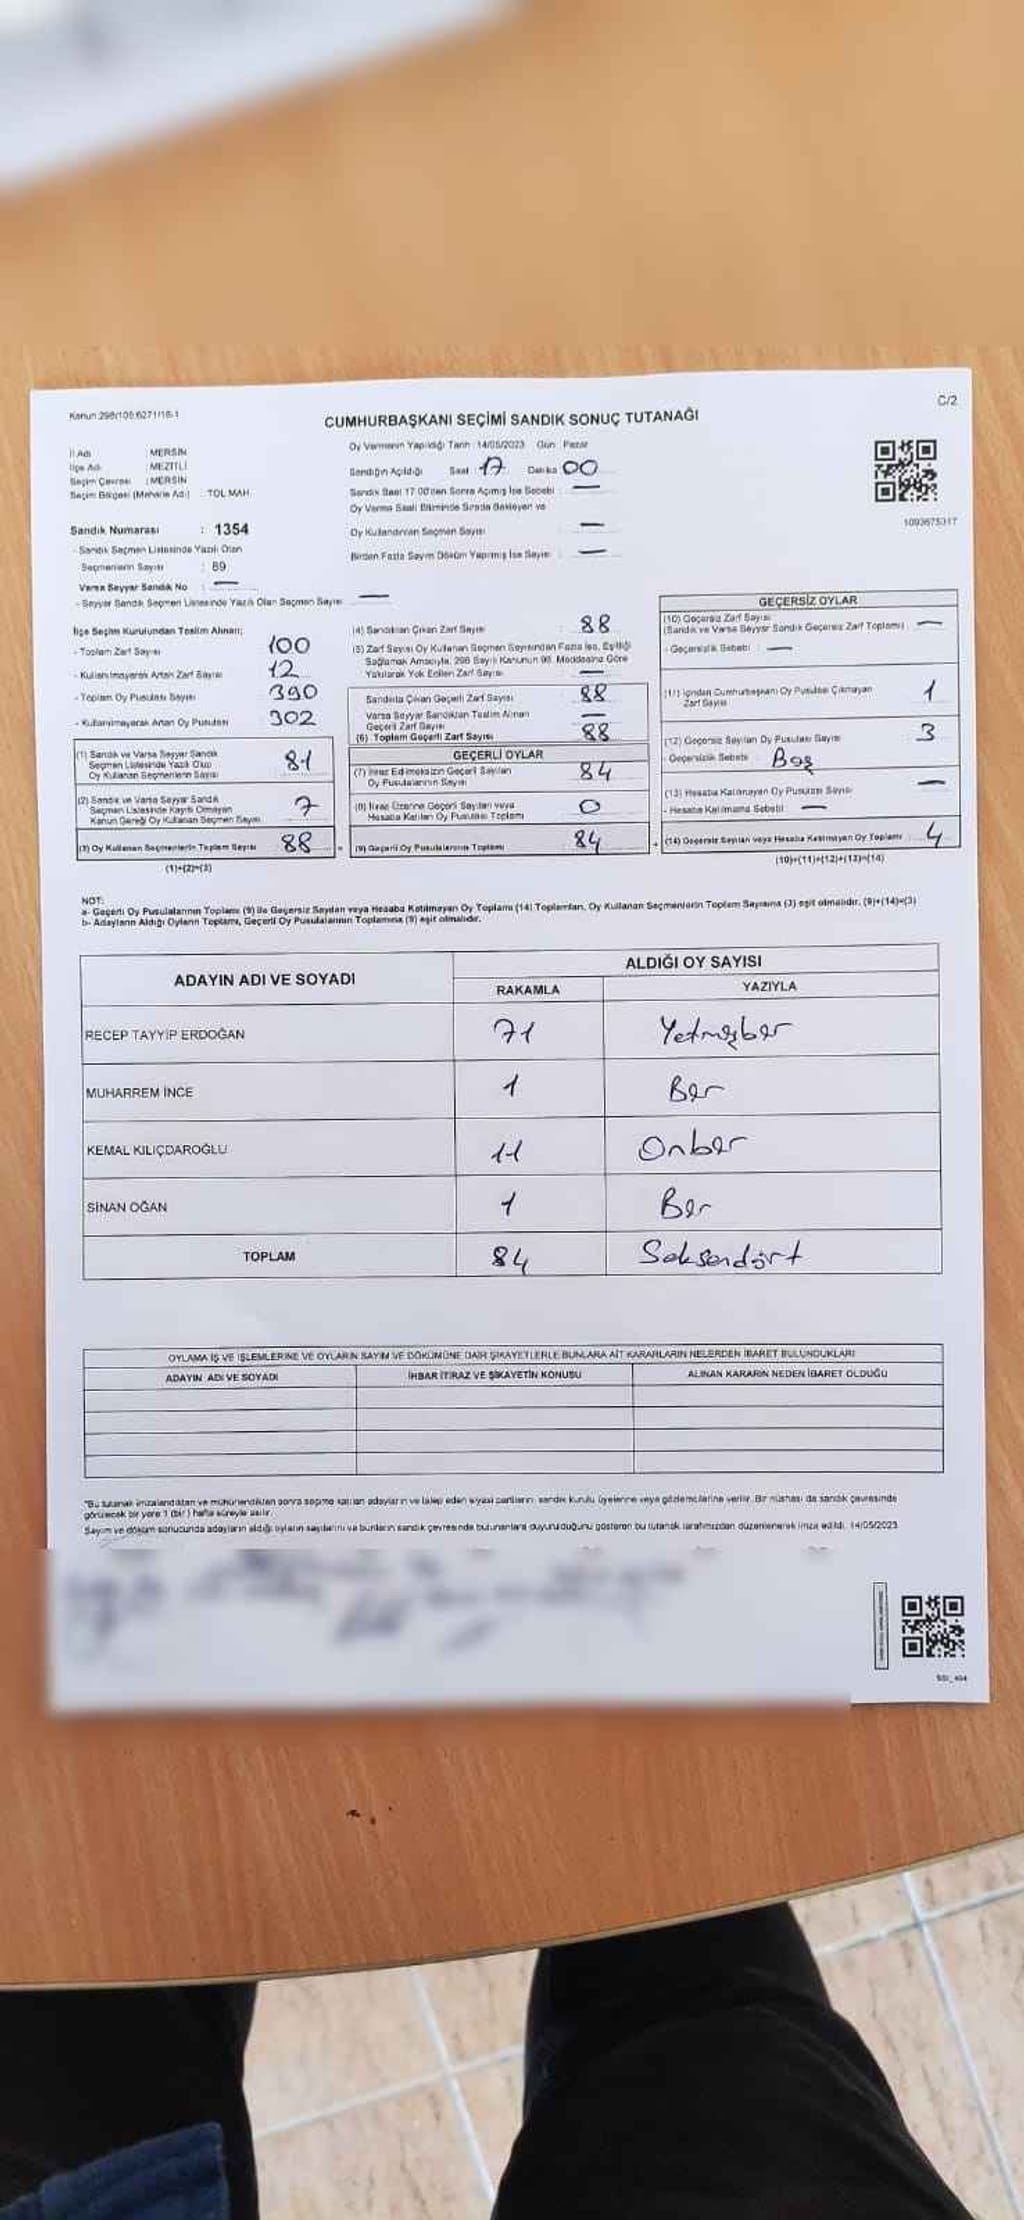 Kanun 298/105 6271/16-1
C/2
CUMHURBAŞKANI SEÇİMİ SANDIK SONUÇ TUTANAĞI
İl Adı : MERSİN
İlçe Adı : MEZİTLİ
Seçim Çevresi : MERSİN
Seçim Bölgesi (Mahalle Adı) : TOL MAH.
Sandık Numarası : 1354
- Sandık Seçmen Listesinde Yazılı Olan
Seçmenlerin Sayısı : 89
Varsa Seyyar Sandık No : —
- Seyyar Sandık Seçmen Listesinde Yazılı Olan Seçmen Sayısı —
Oy Vermenin Yapıldığı Tarih : 14/05/2023 Gün : Pazar
Sandığın Açıldığı Saat 17 Dakika 00
Sandık Saat 17.00'den Sonra Açılmış İse Sebebi : —
Oy Verme Saati Bitiminde Sırada Bekleyen ve
Oy Kullandırılan Seçmen Sayısı : —
Birden Fazla Sayım Döküm Yapılmış İse Sayısı : —
1093675317
İlçe Seçim Kurulundan Teslim Alınan;
- Toplam Zarf Sayısı : 100
- Kullanılmayarak Artan Zarf Sayısı : 12
- Toplam Oy Pusulası Sayısı : 390
- Kullanılmayarak Artan Oy Pusulası : 302
(1) Sandık ve Varsa Seyyar Sandık
Seçmen Listesinde Yazılı Olup
Oy Kullanan Seçmenlerin Sayısı : 81
(2) Sandık ve Varsa Seyyar Sandık
Seçmen Listesinde Kayıtlı Olmayan
Kanun Gereği Oy Kullanan Seçmen Sayısı : 7
(3) Oy Kullanan Seçmenlerin Toplam Sayısı : 88
(1)+(2)=(3)
(4) Sandıktan Çıkan Zarf Sayısı : 88
(5) Zarf Sayısı Oy Kullanan Seçmen Sayısından Fazla İse, Eşitliği
Sağlamak Amacıyla, 298 Sayılı Kanunun 98. Maddesine Göre
Yakılarak Yok Edilen Zarf Sayısı : —
Sandıkta Çıkan Geçerli Zarf Sayısı : 88
Varsa Seyyar Sandıktan Teslim Alınan
Geçerli Zarf Sayısı : —
(6) Toplam Geçerli Zarf Sayısı : 88
GEÇERLİ OYLAR
(7) İtiraz Edilmeksizin Geçerli Sayılan
Oy Pusulalarının Sayısı : 84
(8) İtiraz Üzerine Geçerli Sayılan veya
Hesaba Katılan Oy Pusulası Toplamı : 0
(9) Geçerli Oy Pusulalarının Toplamı : 84
GEÇERSİZ OYLAR
(10) Geçersiz Zarf Sayısı
(Sandık ve Varsa Seyyar Sandık Geçersiz Zarf Toplamı) : —
- Geçersizlik Sebebi : —
(11) İçinden Cumhurbaşkanı Oy Pusulası Çıkmayan
Zarf Sayısı : 1
(12) Geçersiz Sayılan Oy Pusulası Sayısı : 3
- Geçersizlik Sebebi : Boş
(13) Hesaba Katılmayan Oy Pusulası Sayısı : —
- Hesaba Katılmama Sebebi : —
(14) Geçersiz Sayılan veya Hesaba Katılmayan Oy Toplamı : 4
(10)+(11)+(12)+(13)=(14)
NOT:
a- Geçerli Oy Pusulalarının Toplamı (9) ile Geçersiz Sayılan veya Hesaba Katılmayan Oy Toplamı (14) Toplamları, Oy Kullanan Seçmenlerin Toplam Sayısına (3) eşit olmalıdır. (9)+(14)=(3)
b- Adayların Aldığı Oyların Toplamı, Geçerli Oy Pusulalarının Toplamına (9) eşit olmalıdır.
ADAYIN ADI VE SOYADI ALDIĞI OY SAYISI
RAKAMLA YAZIYLA
RECEP TAYYİP ERDOĞAN 71 Yetmişbir
MUHARREM İNCE 1 Bir
KEMAL KILIÇDAROĞLU 11 Onbir
SİNAN OĞAN 1 Bir
TOPLAM 84 Seksendört
OYLAMA İŞ VE İŞLEMLERİNE VE OYLARIN SAYIM VE DÖKÜMÜNE DAİR ŞİKAYETLERLE BUNLARA AİT KARARLARIN NELERDEN İBARET BULUNDUKLARI
ADAYIN ADI VE SOYADI İHBAR İTİRAZ VE ŞİKAYETİN KONUSU ALINAN KARARIN NEDEN İBARET OLDUĞU
*Bu tutanak imzalandıktan ve mühürlendikten sonra seçime katılan adayların ve talep eden siyasi partilerin sandık kurulu üyelerine veya gözlemcilerine verilir. Bir nüshası da sandık çevresinde
görülecek bir yere 1 (bir) hafta süreyle asılır.
Sayım ve döküm sonucunda adayların aldığı oyların sayılarını ve bunların sandık çevresinde bulunanlara duyurulduğunu gösteren bu tutanak tarafımızdan düzenlenerek imza edildi. 14/05/2023